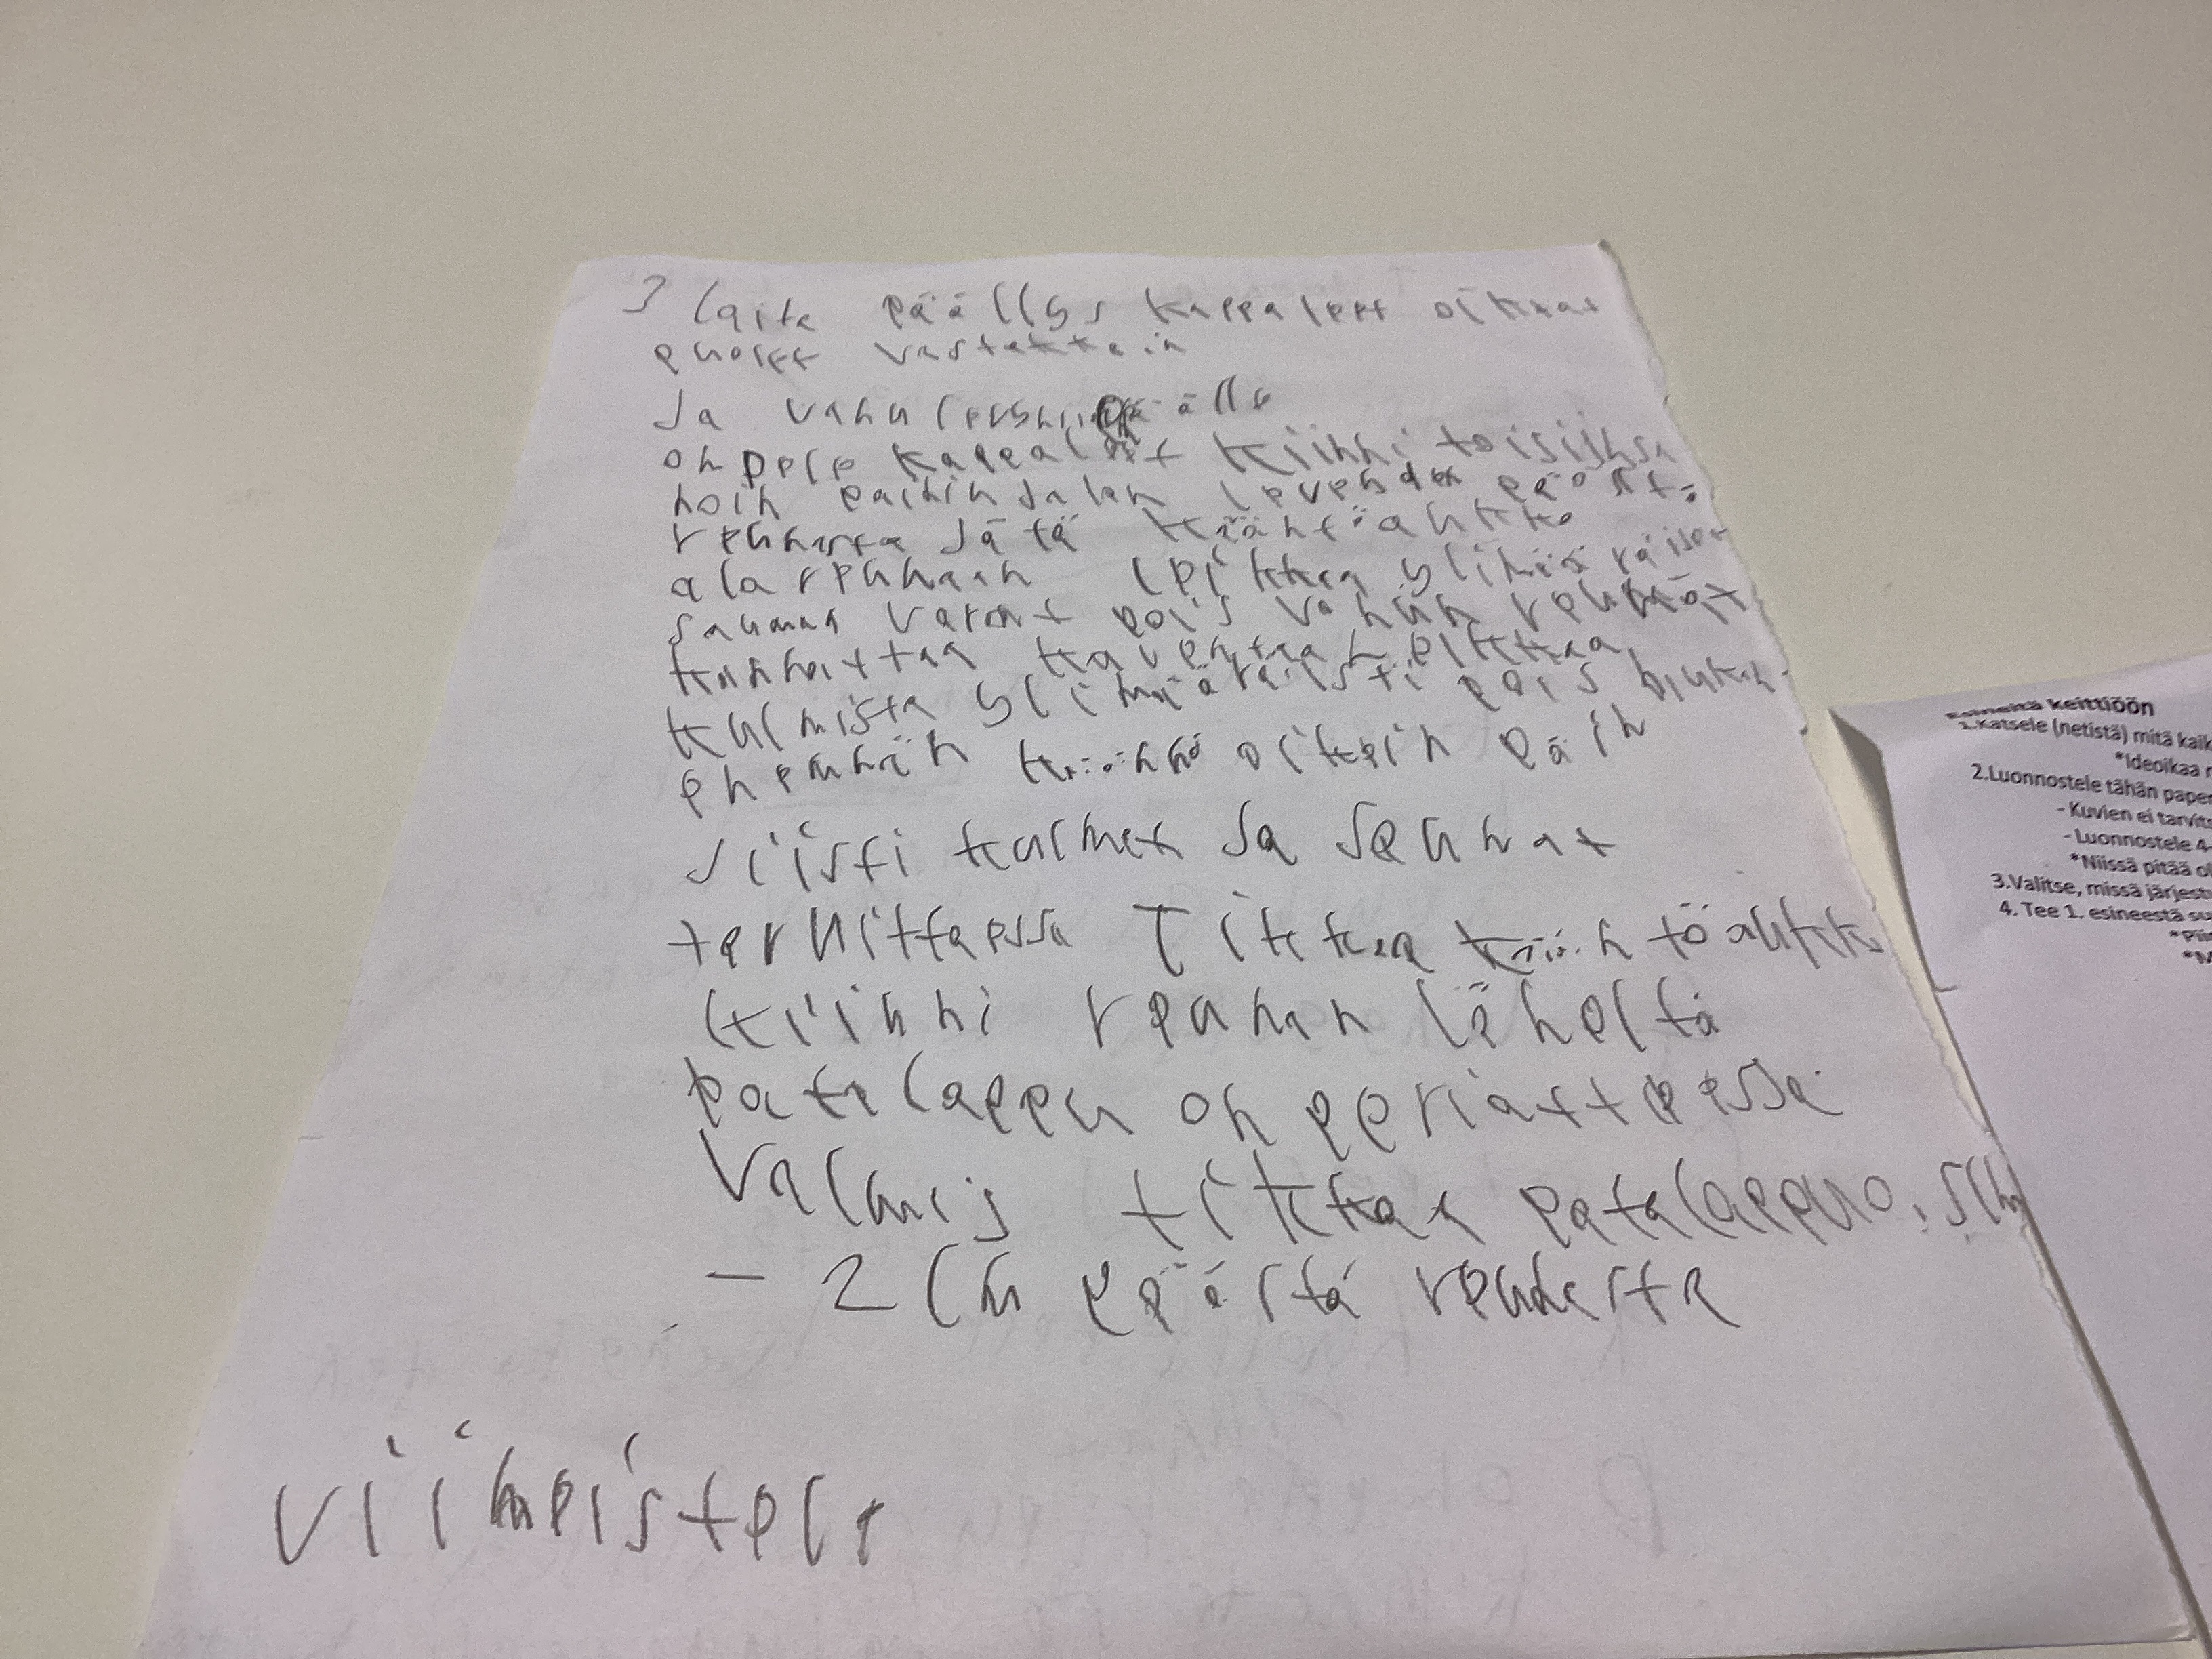 3 Laita päällys kappaleet oikeat
puolet vastakkain
Ja vanu levyn päälle
ompele kappaleet kiinni toisiinsa
noin paininjalan leveyden päästä
reunasta Jätä kääntöaukko
alareunaan leikkaa ylimääräiset
sauman varat pois vanun reunat
kannattaa kaventaa leikkaa
kulmista ylimääräisti pois
pienemmän käännä oikein päin
siisti kulmat Ja seunat
tarvittaessa Tikkaa kääntöaukko
kiinni reunan läheltä
patalappu on periaatteessa
valmis tikkaa patalappuo
- 2 cm päästä reunasta
viimeistele
Esineitä keittiöön
1.Katsele (netistä) mitä kaik
*Ideoikaa
2.Luonnostele tähän paper
- Kuvien ei tarvits
- Luonnostele 4-
*Niissä pitää ol
3.Valitse, missä järjest
4. Tee 1. esineestä su
*Piir
*M